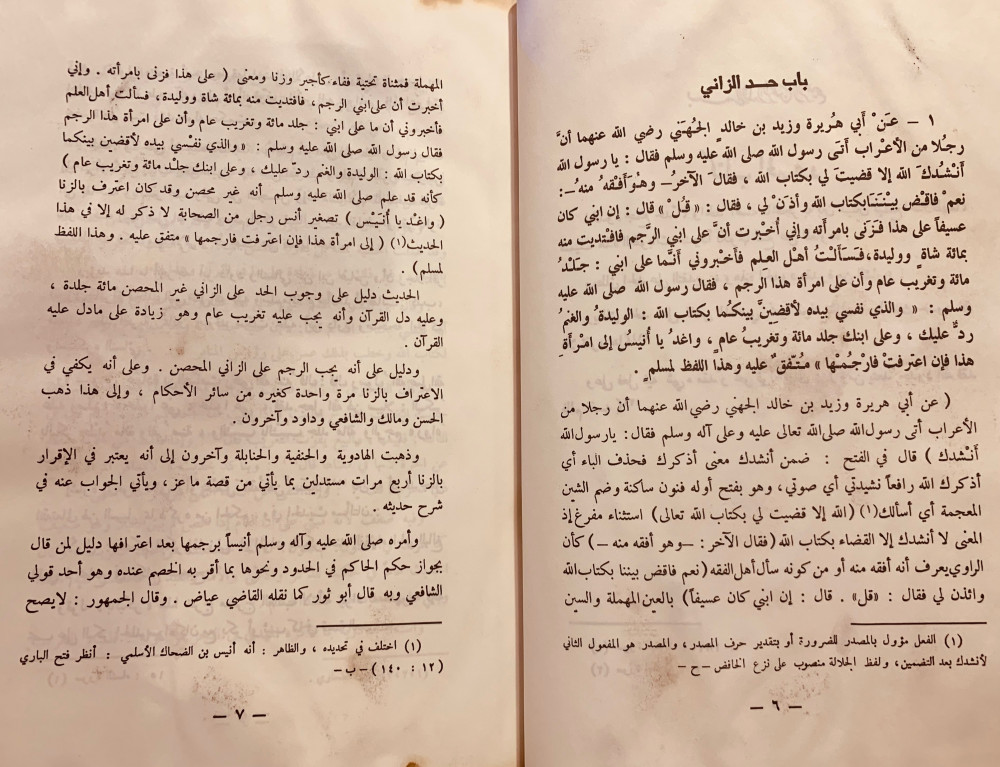 باب حد الزاني
١ – عَنْ أبي هُريرة وزيد بن خالدٍ الجُهَنيِّ رضي الله عنهما أنَّ
رجُلًا من الأعْراب أتَى رسول الله صلى الله عليه وسلم فقال : يا رسول الله
أنْشُدُكَ اللهَ إلا قضيتَ لي بكتاب الله ، فقالَ الآخَرُ – وهُوَ أفْقَهُ منهُ – :
نعمْ فاقْضِ بيْننَا بكتاب الله وأْذَنْ لي ، فقال : « قُلْ » قال : إن ابني كان
عسيفاً على هذا فزَنَى بامرأته وإني أُخْبرت أنَّ على ابني الرَّجم فافتديت منه
بمائة شاةٍ ووليدة، فسَألتُ أهلَ العِلم فأخبروني أنَّما على ابني : جلْدُ
مائة وتغريب عام وأن على امرأة هذا الرجم ، فقال رسول الله صلى الله عليه
وسلم : « والذي نفسي بيده لأقضِيَنَّ بينكُما بكتاب الله : الوليدةُ والغنمُ
ردٌّ عليك ، وعلى ابنك جلد مائة وتغريبُ عامٍ ، واغدُ يا أُنيسُ إلى امْرأةِ
هذا فإن اعترفتْ فارْجُمْها » مُتّفقٌ عليه وهذا اللفظ لمسلمٍ .
( عن أبي هريرة وزيد بن خالد الجهني رضي الله عنهما أن رجلا من
الأعراب أتى رسول الله صلى الله تعالى عليه وعلى آله وسلم فقال : يارسول الله
أنْشدك ) قال في الفتح : ضمن أنشدك معنى أذكرك فحذف الباء أي
أذكرك الله رافعاً نشيدتي أي صوتي ، وهو بفتح أوله فنون ساكنة وضم الشين
المعجمة أي أسألك(١) (الله إلا قضيت لي بكتاب الله تعالى) استثناء مفرغ إذ
المعنى لا أنشدك إلا القضاء بكتاب الله (فقال الآخر : – وهو أفقه منه – ) كأن
الراوي يعرف أنه أفقه منه أو من كونه سأل أهل الفقه (نعم فاقض بيننا بكتاب الله
وائذن لي فقال : «قل» . قال : إن ابني كان عسيفاً) بالعين المهملة والسين
(١) الفعل مؤول بالمصدر للضرورة أو بتقدير حرف المصدر ، والمصدر هو المفعول الثاني
لأنشدك بعد التضمين ، ولفظ الجلالة منصوب على نزع الخافض – ح –
– ٦ –
المهملة فمثناة تحتية ففاء كأجير وزنا ومعنى ( على هذا فزنى بامرأته . وإني
أخبرت أن على ابني الرجم ، فافتديت منه بمائة شاة ووليدة ، فسألت أهل العلم
فأخبروني أن ما على ابني : جلد مائة وتغريب عام وأن على امرأة هذا الرجم
فقال رسول الله صلى الله عليه وسلم : « والذي نفْسي بيده لأقضين بينكما
بكتاب الله : الوليدة والغنم ردّ عليك ، وعلى ابنك جلْد مائة وتغريب عام )
كأنه قد علم صلى الله عليه وسلم أنه غير محصن وقد كان اعترف بالزنا
( واغدْ يا أُنَيْس ) تصغير أنس رجل من الصحابة لا ذكر له إلا في هذا
الحديث(١) ( إلى امرأة هذا فإن اعترفت فارجمها » متفق عليه . وهذا اللفظ
لمسلم ) .
الحديث دليل على وجوب الحد على الزاني غير المحصن مائة جلدة ،
وعليه دل القرآن وأنه يجب عليه تغريب عام وهو زيادة على مادل عليه
القرآن .
ودليل على أنه يجب الرجم على الزاني المحصن . وعلى أنه يكفي في
الاعتراف بالزنا مرة واحدة كغيره من سائر الأحكام ، وإلى هذا ذهب
الحسن ومالك والشافعي وداود وآخرون .
وذهبت الهادوية والحنفية والحنابلة وآخرون إلى أنه يعتبر في الإقرار
بالزنا أربع مرات مستدلين بما يأتي من قصة ماعز ، ويأتي الجواب عنه في
شرح حديثه .
وأمره صلى الله عليه وآله وسلم أنيساً برجمها بعد اعترافها دليل لمن قال
بجواز حكم الحاكم في الحدود ونحوها بما أقر به الخصم عنده وهو أحد قولي
الشافعي وبه قال أبو ثور كما نقله القاضي عياض . وقال الجمهور : لايصح
(١) اختلف في تحديده ، والظاهر : أنه أنيس بن الضحاك الأسلمي : أنظر فتح الباري
(١٢ : ١٤٠) – ب –
– ٧ –